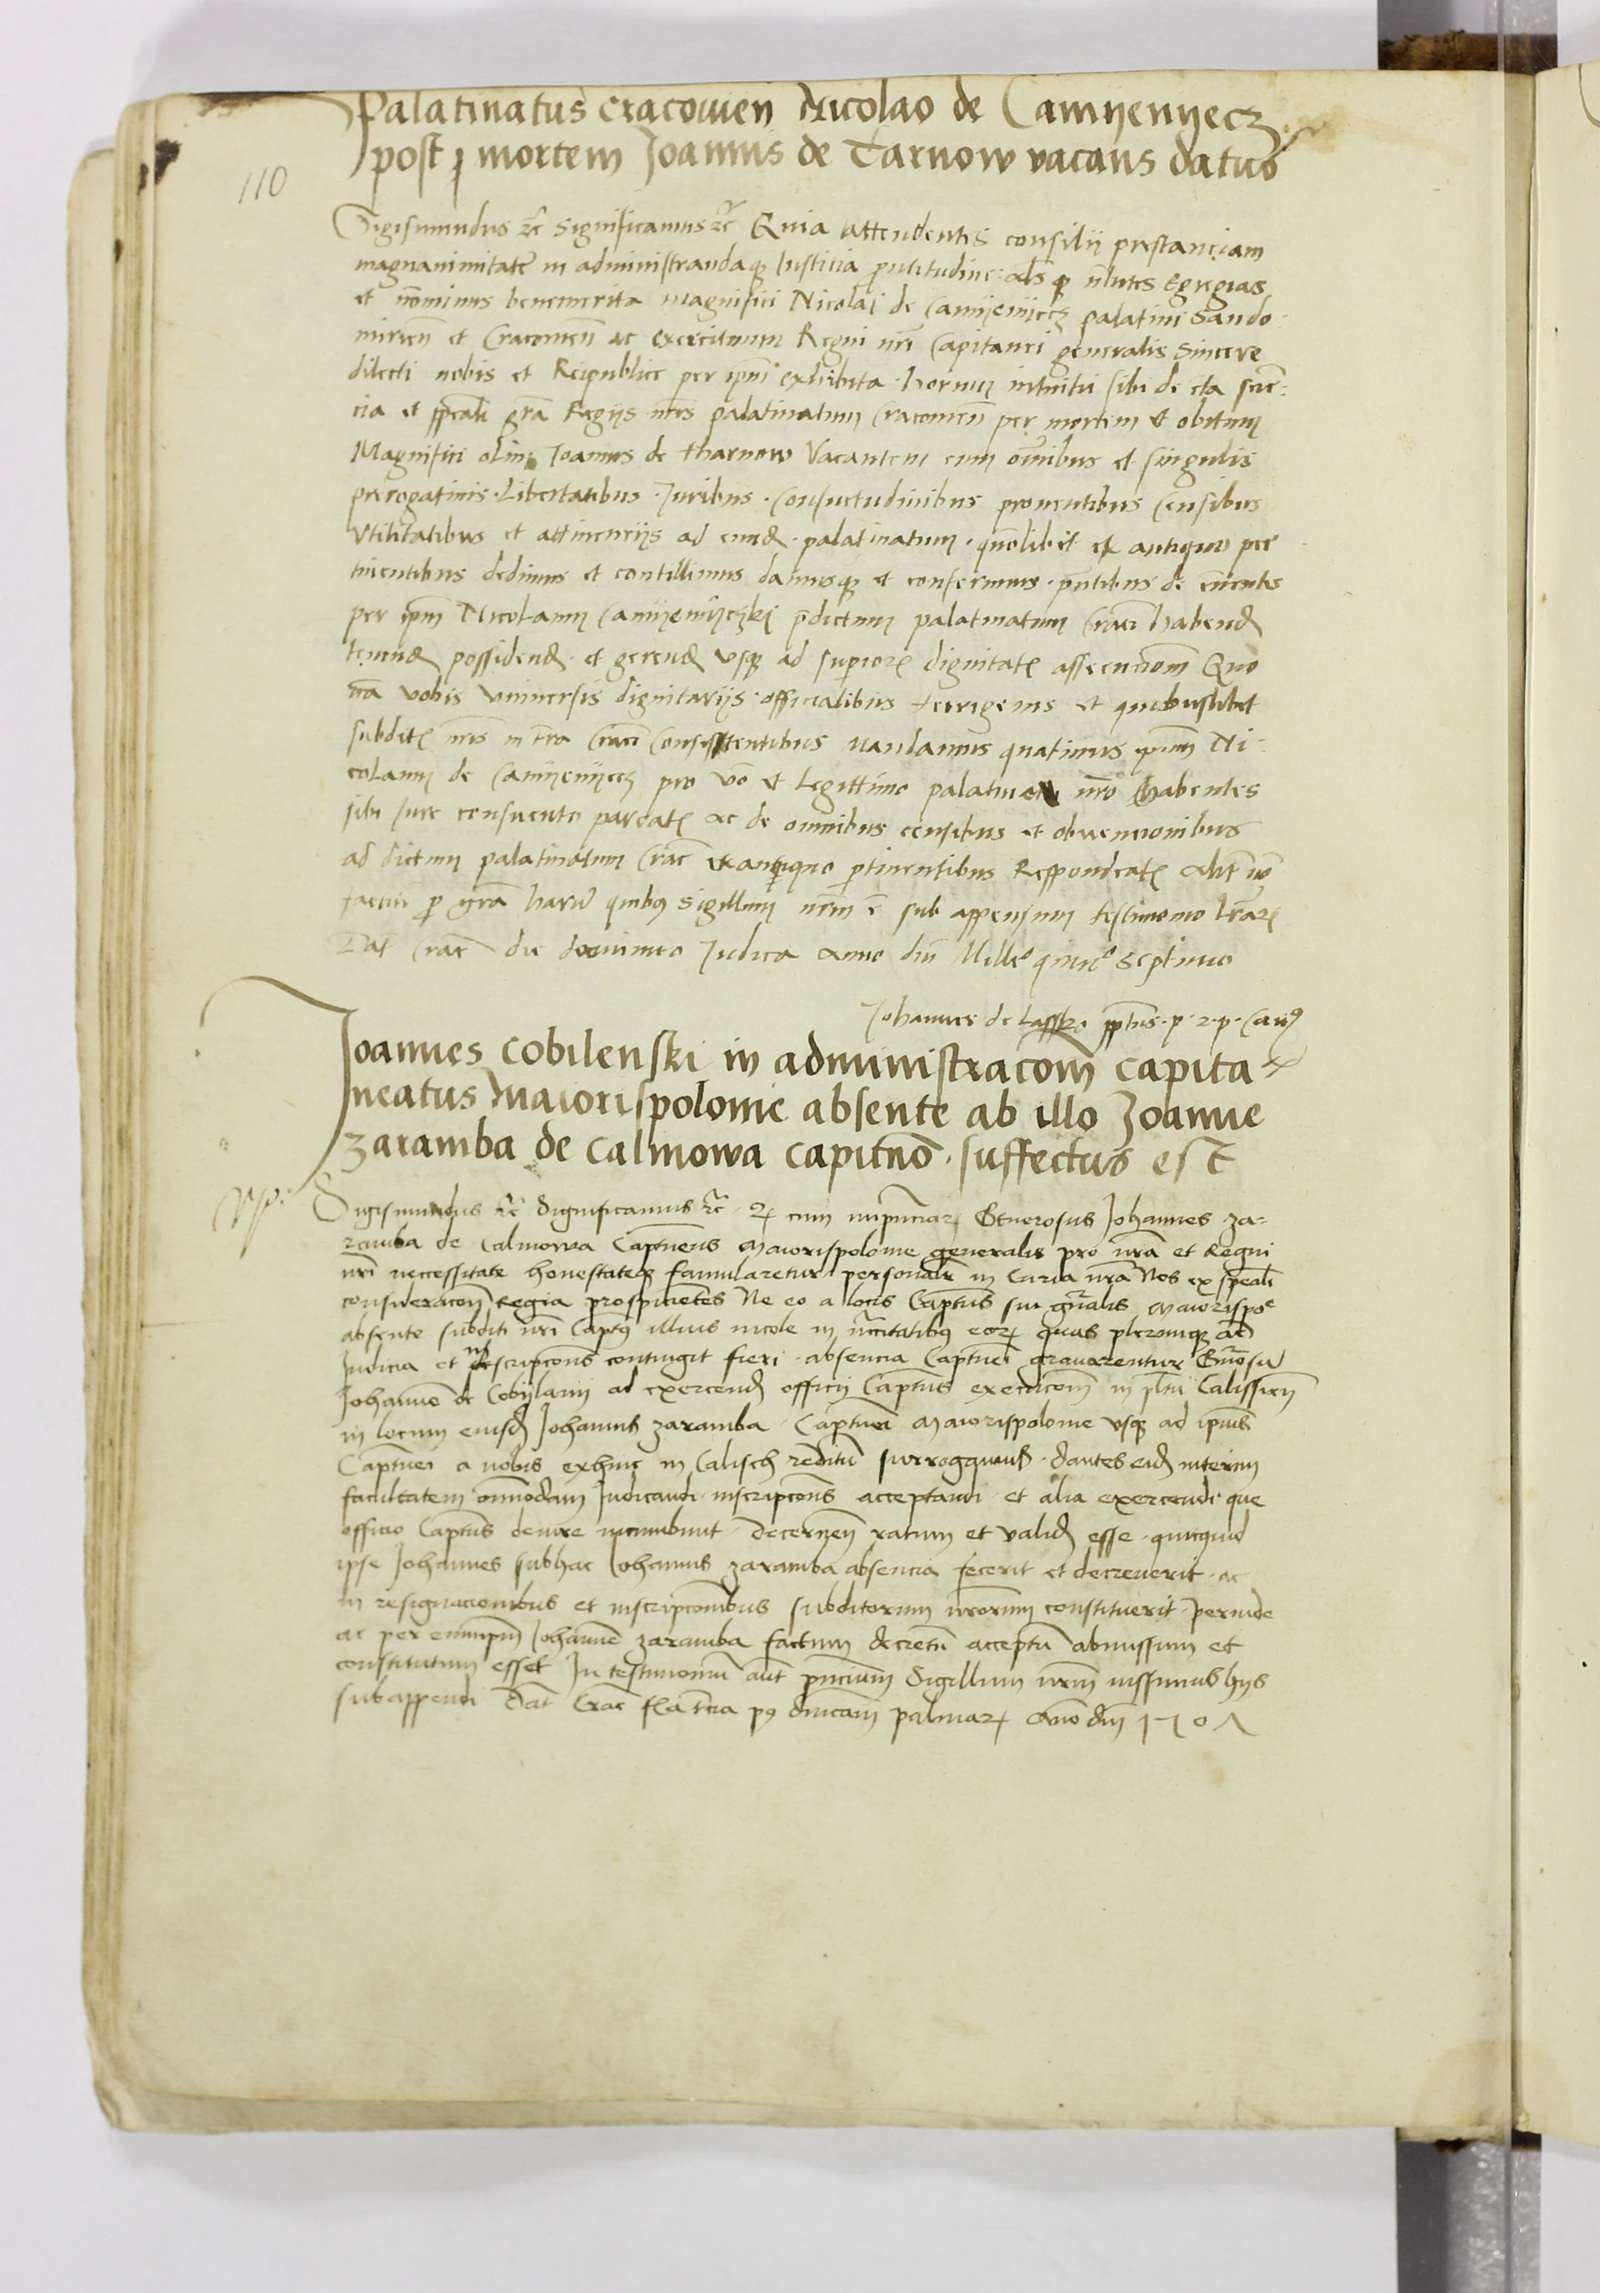 Palatinatus cracouien Nicolao de Camyenyecz
post mortem Joannis de Tarnow vacans datus
110
Sigismundus etc Significamus etc Quia attendentes consilii prestanciam
magnanimitatē in administrandaq Iusticia promtitudinē alsq vtutes Egregias
et nōminus benemerita Magnifici Nicolai de Camyenyecz palatini Sando
mirien et Cracouien ac exercituum Regni nri Capitanei generalis Sincere
dilecti nobis et Reipublice per ipm exhibita horum intuitu sibi de cta scie
cia et speali gra Regijs nris palatinatum Cracouien per mortem et obitum
Magnifici olim Joannis de tharnow Vacantem cum omibus et singulis
prerogatiuis Libertatibus Juribus Consuetudinibus prouentibus Censibus
Vtilitatibus et attinencijs ad eund palatinatum quolibet ex antiquo per
tinentibus dedimus et contulimus damusq et conferimus pntibus de
per ipm Nicolaum Camyenyeczki pdictum palatinatum Crac habend
tenend possidend et gerend vsq ad superiorē dignitatē assecuciom Quo
ca vobis vniuersis dignitarijs officialibus terrigenis et quibuslibet
subditis nris in tra Crac Consistentibus mandamus quatinus ipm Ni
colaum de Camyenyecz pro vo et Legittimo palatino nro habentes
sibi Jure consueto pareatis ac de omnibus censibus et obuencionibus
ad dictum palatinatum Crac ex antiquo ptinentibus Respondeatis
facturi p gra haru quibus Sigillum nrm e sub appensum testimonio lrarum
Dat Crac die dominico Judica Anno dni Mille quin Septimo
Johannes de Lassko
Joannes Cobilenski in administracom capita
neatus Maiorispolonie absente ab illo Joanne
Zaramba de Calmowa capitno suffectus est
Sigismundus etc Significamus etc cum Generosus Johannes Za-
ramba de Calmowa Captneus Maiorispolonie generalis pro nra et Regni
nri neccessitate honestateq famularetur personalr in Curia nra Nos ex speali
consideracoe Regia prospicietes Ne eo a locis Captus sui gnralis Maiorispo
absente subditi nri Captus illius incole in nccitatibus eor quas plerumq ad
Judicia et inscripcons contingit fieri absencia Captnei grauarentur Gnosu
Johanne de Cobylany ad exercend officij Captus execucom in pltu Calissien
in locum eiusd Johannis Zaramba Captnei Maiorispolonie vsq ad ipius
Captnei a nobis exhinc in Calisch reditu surrogamus dantes eid interim
facultatem omodam Judicandi inscripcons acceptandi et alia exercendi que
officio Captus de iure incumbunt Decernen ratum et valid esse quicquid
ipse Johannes sub hac Johannis Zaramba absencia fecerit et decreuerit ac
in resignacionibus et inscripcombus subditorum nrorum constituerit perinde
ac per eumipm Johanne Zaramba factum decretu acceptu admissum et
constitutum esset In testimoniu aut pmissum Sigillum nrm iussimus hijs
subappendi Dat Crac fia tcia pt dnicam palmarum Ano dni 1507